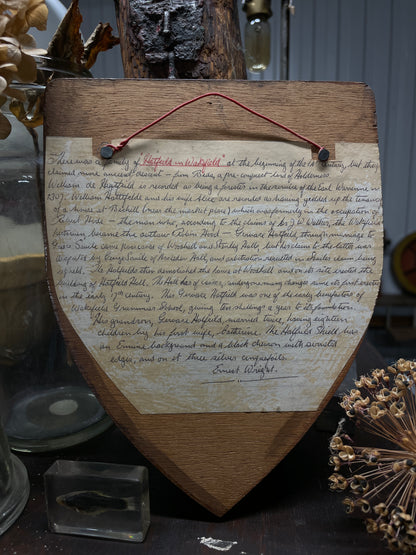 There was a family of Hatfeild in Wakefield at the beginning of the 14th century, but they
claimed more ancient descent – from Beda, a pre-conquest lord of Holderness.
William de Heitfeild is recorded as being a forester in the service of the Earl Warenne in
1307. William Hattfeild and his wife Alice are recorded as having yielded up the tenancy
of a house at Bichill (near the market place) which was formerly in the occupation of
Robert Hode – the man who, according to the claims of Mr. J. W. Walker, the Wakefield
historian became the outlaw Robin Hood. – Gervase Hatfeild through marriage to
Grace Savile came possessor of Woodhall and Stanley Halls, but his claim to the latter was
disputed by George Savile of Haselden Hall, and arbitration resulted in his claim being
upheld. The Hatfeilds then demolished the home at Woodhall and on its site erected the
building of Hatfeild Hall. The Hall has, of course, undergone many changes since its first erection
in the early 17th century. This Gervase Hatfeild was one of the early benefactors of
Wakefield Grammar School, giving ten shillings a year to its foundation.
His grandson, Gervase Hatfeild, married twice, having eighteen
children by his first wife, Catherine. The Hatfeild Shield has
an Ermine background and a black chevron with
edges, and on it three silver cinquefoils.
Ernest Wright.